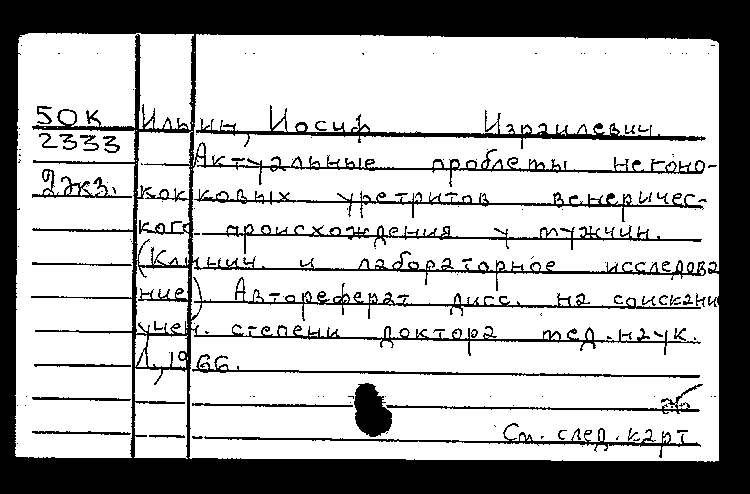 50К Ильин, Иосиф Израилевич.
2333
Актуальные проблемы негоно-
2экз. кокковых уретритов венеричес-
кого происхождения у мужчин.
(Клинич. и лабораторное исследова
ние). Автореферат дисс. на соискани
учен. степени доктора мед.наук.
Л., 1966.
См. след. карт